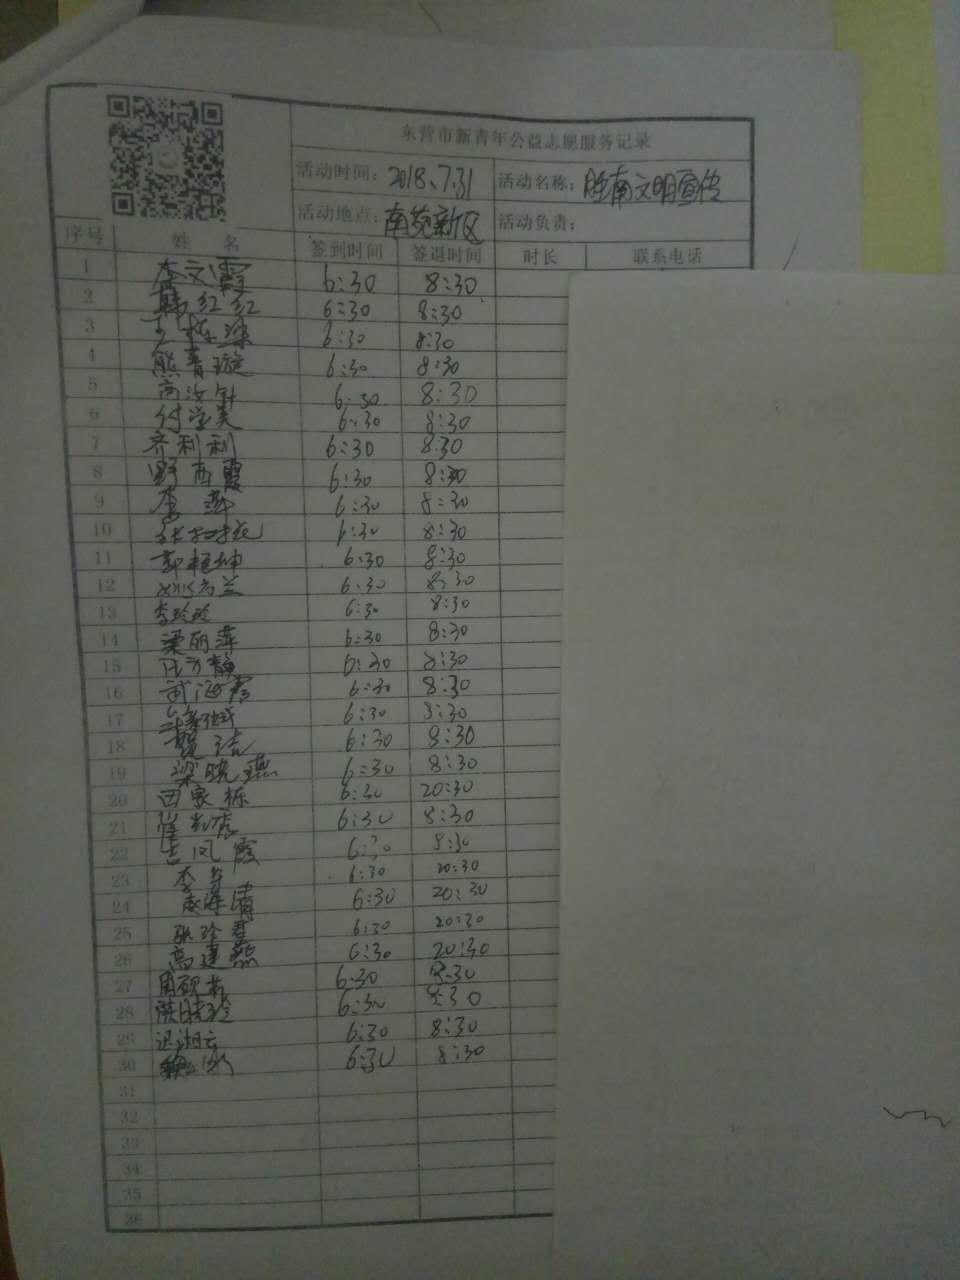 东营市新青年公益志愿服务记录
活动时间：2018、7.31 活动名称：胜南文明宣传
活动地点：南苑新区 活动负责：
序号 姓 名 签到时间 签退时间 时长 联系电话
1 李文霞 6:30 8:30
2 韩红红 6:30 8:30
3 6:30 8:30
4 熊青璇 6:30 8:30
5 6:30 8:30
6 付学美 6:30 8:30
7 齐利利 6:30 8:30
8 野西霞 6:30 8:30
9 李萍 6:30 8:30
10 6:30 8:30
11 郭艳坤 6:30 8:30
12 6:30 8:30
13 李玲玲 6:30 8:30
14 梁丽萍 6:30 8:30
15 6:30 8:30
16 武海霞 6:30 8:30
17 6:30 8:30
18 6:30 8:30
19 梁晓琪 6:30 8:30
20 田家栋 6:30 20:30
21 6:30 8:30
22 吉凤霞 6:30 8:30
23 6:30 20:30
24 6:30 20:30
25 张玲君 6:30 20:30
26 高建磊 6:30 20:30
27 6:30 8:30
28 6:30 8:30
29 6:30 8:30
30 6:30 8:30
31
32
33
34
35
36